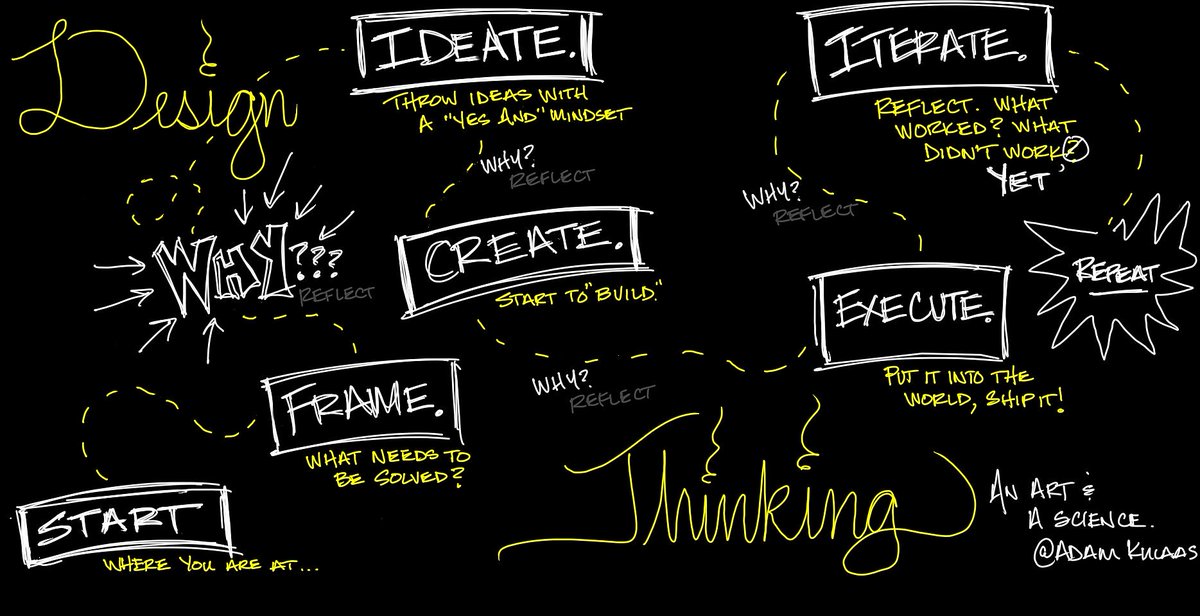 Design
START
WHERE YOU ARE AT...
FRAME.
WHAT NEEDS TO
BE SOLVED?
WHY???
REFLECT
IDEATE.
THROW IDEAS WITH
A "YES AND" MINDSET
WHY?
REFLECT
CREATE.
START TO "BUILD."
WHY?
REFLECT
EXECUTE.
PUT IT INTO THE
WORLD, SHIP IT!
WHY?
REFLECT
ITERATE.
REFLECT. WHAT
WORKED? WHAT
DIDN'T WORK?
YET
REPEAT
Thinking
AN ART &
A SCIENCE.
@ADAMKULAAS